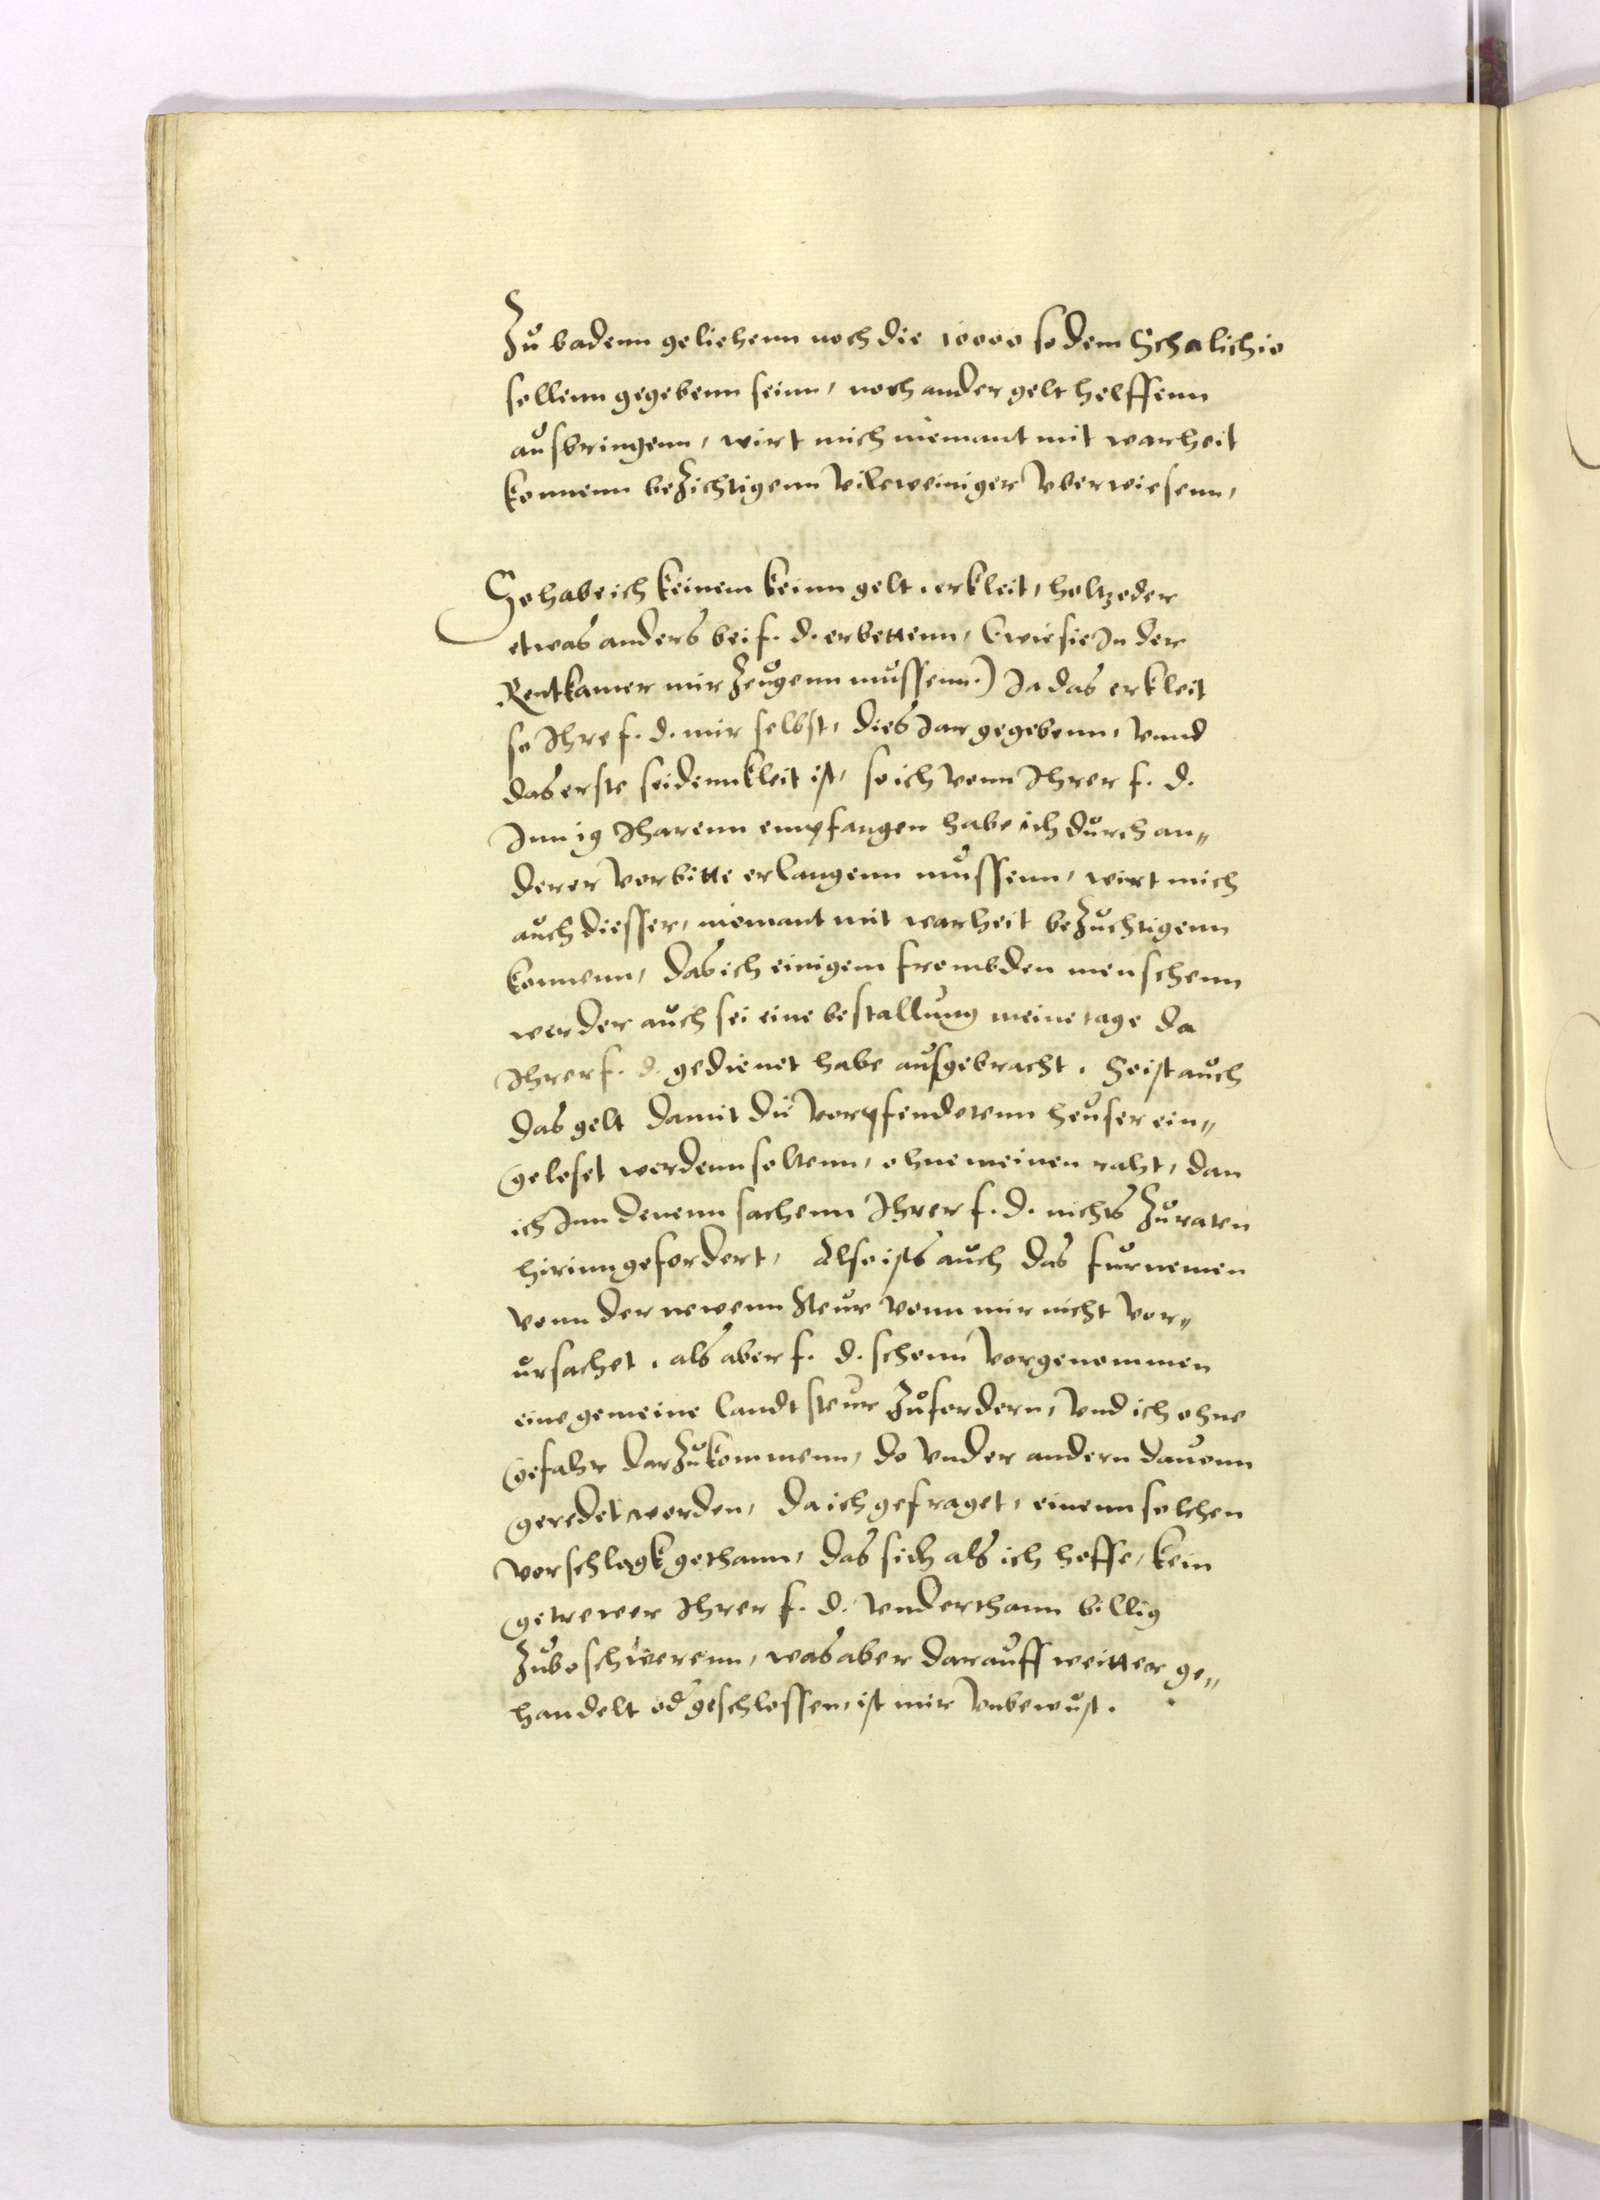 Zu badenn geliehenn noch die 10000 so dem Schalichio
sollenn gegebenn seinn, noch ander gelt helffenn
ausbringenn, wirt mich niemant mit warheit
konnenn bezichtigenn vileweiniger vberwiesenn,
So habe ich keinem keinn gelt, erkleit, holtz oder
etwas anders bei f. d. erbettenn, (wie sie In der
Rentkamer mir zeugenn mussenn.) Ja das erkleit
so Ihre f. d. mir selbst, dies Jar gegebenn, vnnd
das erste seidennkleit ist, so ich vonn Ihrer f. d.
Inn 19 Iharenn empfangen habe ich durch an„
derer vorbitte erlangenn mussenn, wirt mich
auch diesser, niemant mit warheit bezuchtigenn
konnenn, das ich einigem frombden menschenn
werder auch sei eine bestallung meine tage da
Ihrer f. d. gedienet habe ausgebracht. So ist auch
das gelt damit die vorpfendetenn heuser ein„
geloset werdenn soltenn, ohne meinen raht, dan
ich Inn denenn sachenn Ihrer f. d. nichts zuraten
hirinn gefordert, Also ists auch das furnemen
vonn der newenn Steur vonn mir nicht vor„
ursachet. als aber f. d. schonn vorgenommen
eine gemeine landt steur zufordern, vnd ich ohne
gefahr darzukommenn, do vnder andern dauonn
geredet worden, da ich gefraget, einenn solchen
vorschlagk gethann, das sich als ich hoffe, kein
getrewer Ihrer f. d. vnderthann billig
zubeschwerenn, was aber darauff weitter ge„
handelt od geschlossen, ist mir vnbewust.